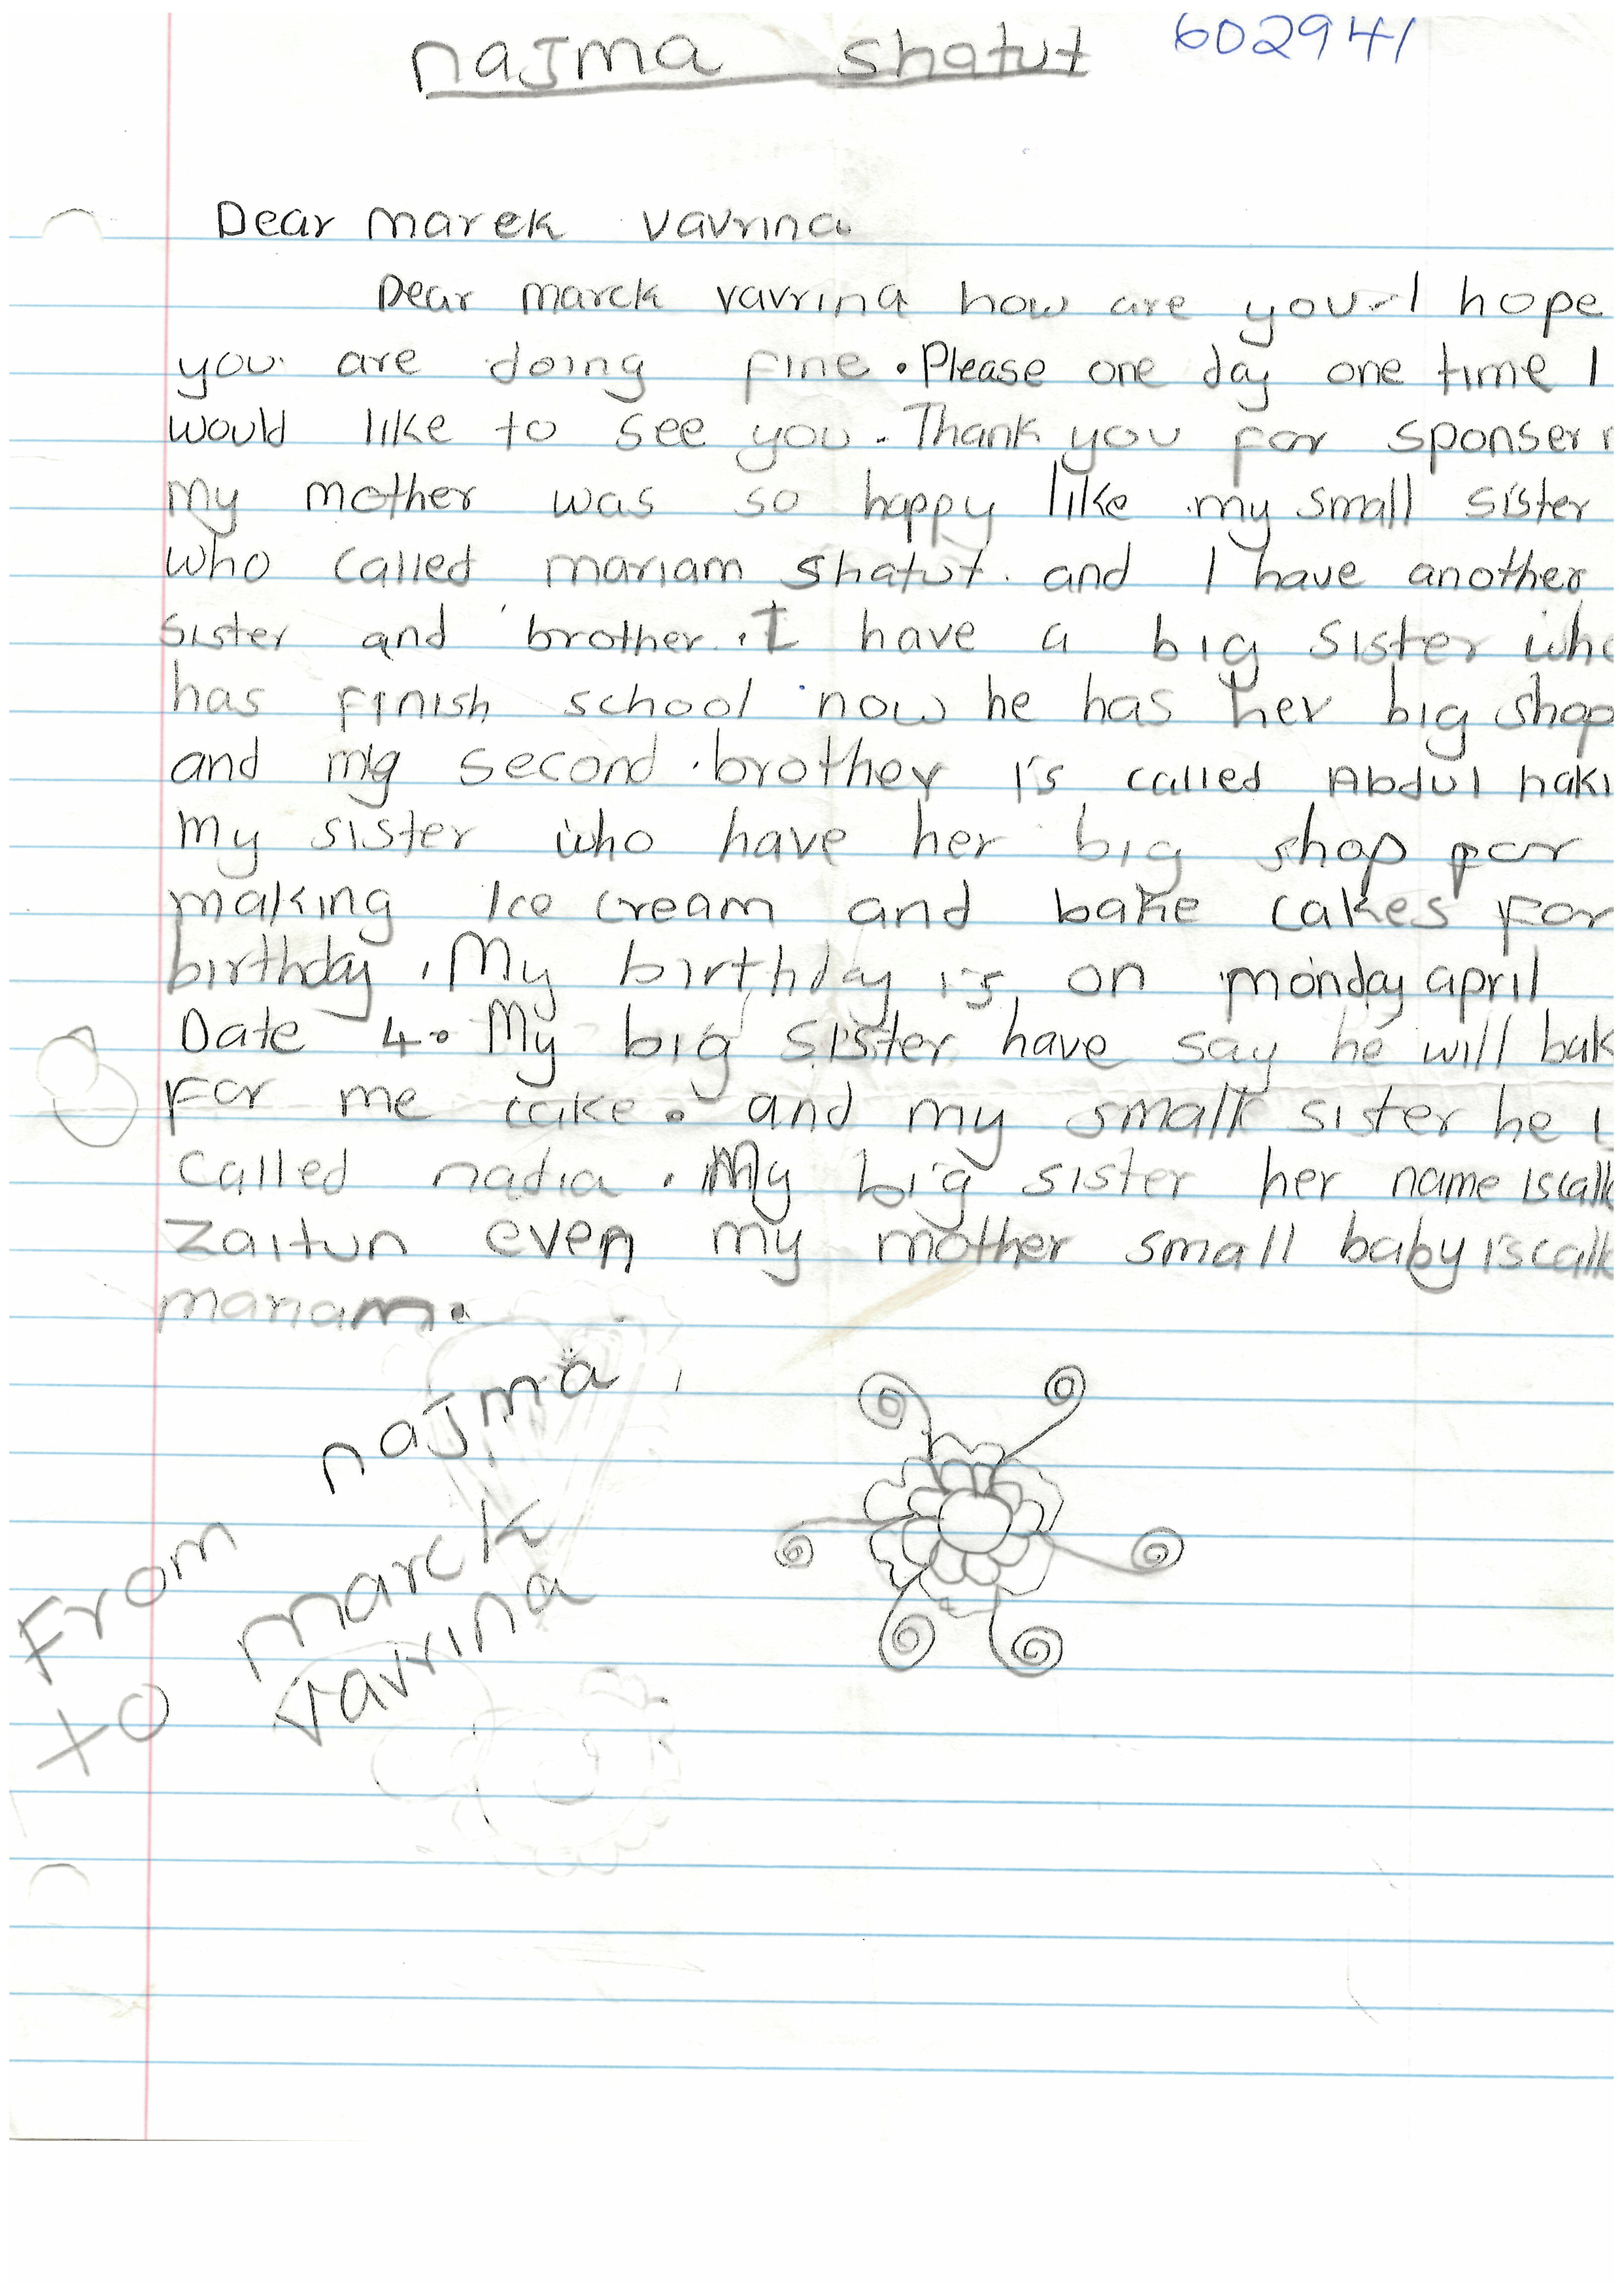 najma shatut 602941
Dear marek vavrina
Dear marck vavrina how are you. I hope
you are doing fine. Please one day one time I
would like to see you. Thank you for sponser
my mother was so happy like my small sister
who called mariam shatut. and I have another
sister and brother. I have a big sister who
has finish school now he has her big shop
and my second brother is called Abdul haki
My sister who have her big shop for
making Ice cream and bake cakes for
birthday. My birthday is on monday april
Date 4. My big sister have say he will bak
for me cake. and my small sister he i
called nadia. My big sister her name is calle
Zaitun even my mother small baby is calle
mariam.
From najma
to marck
vavrina